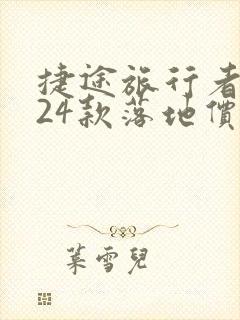 捷途旅行者
24款落地價
葉雪兒